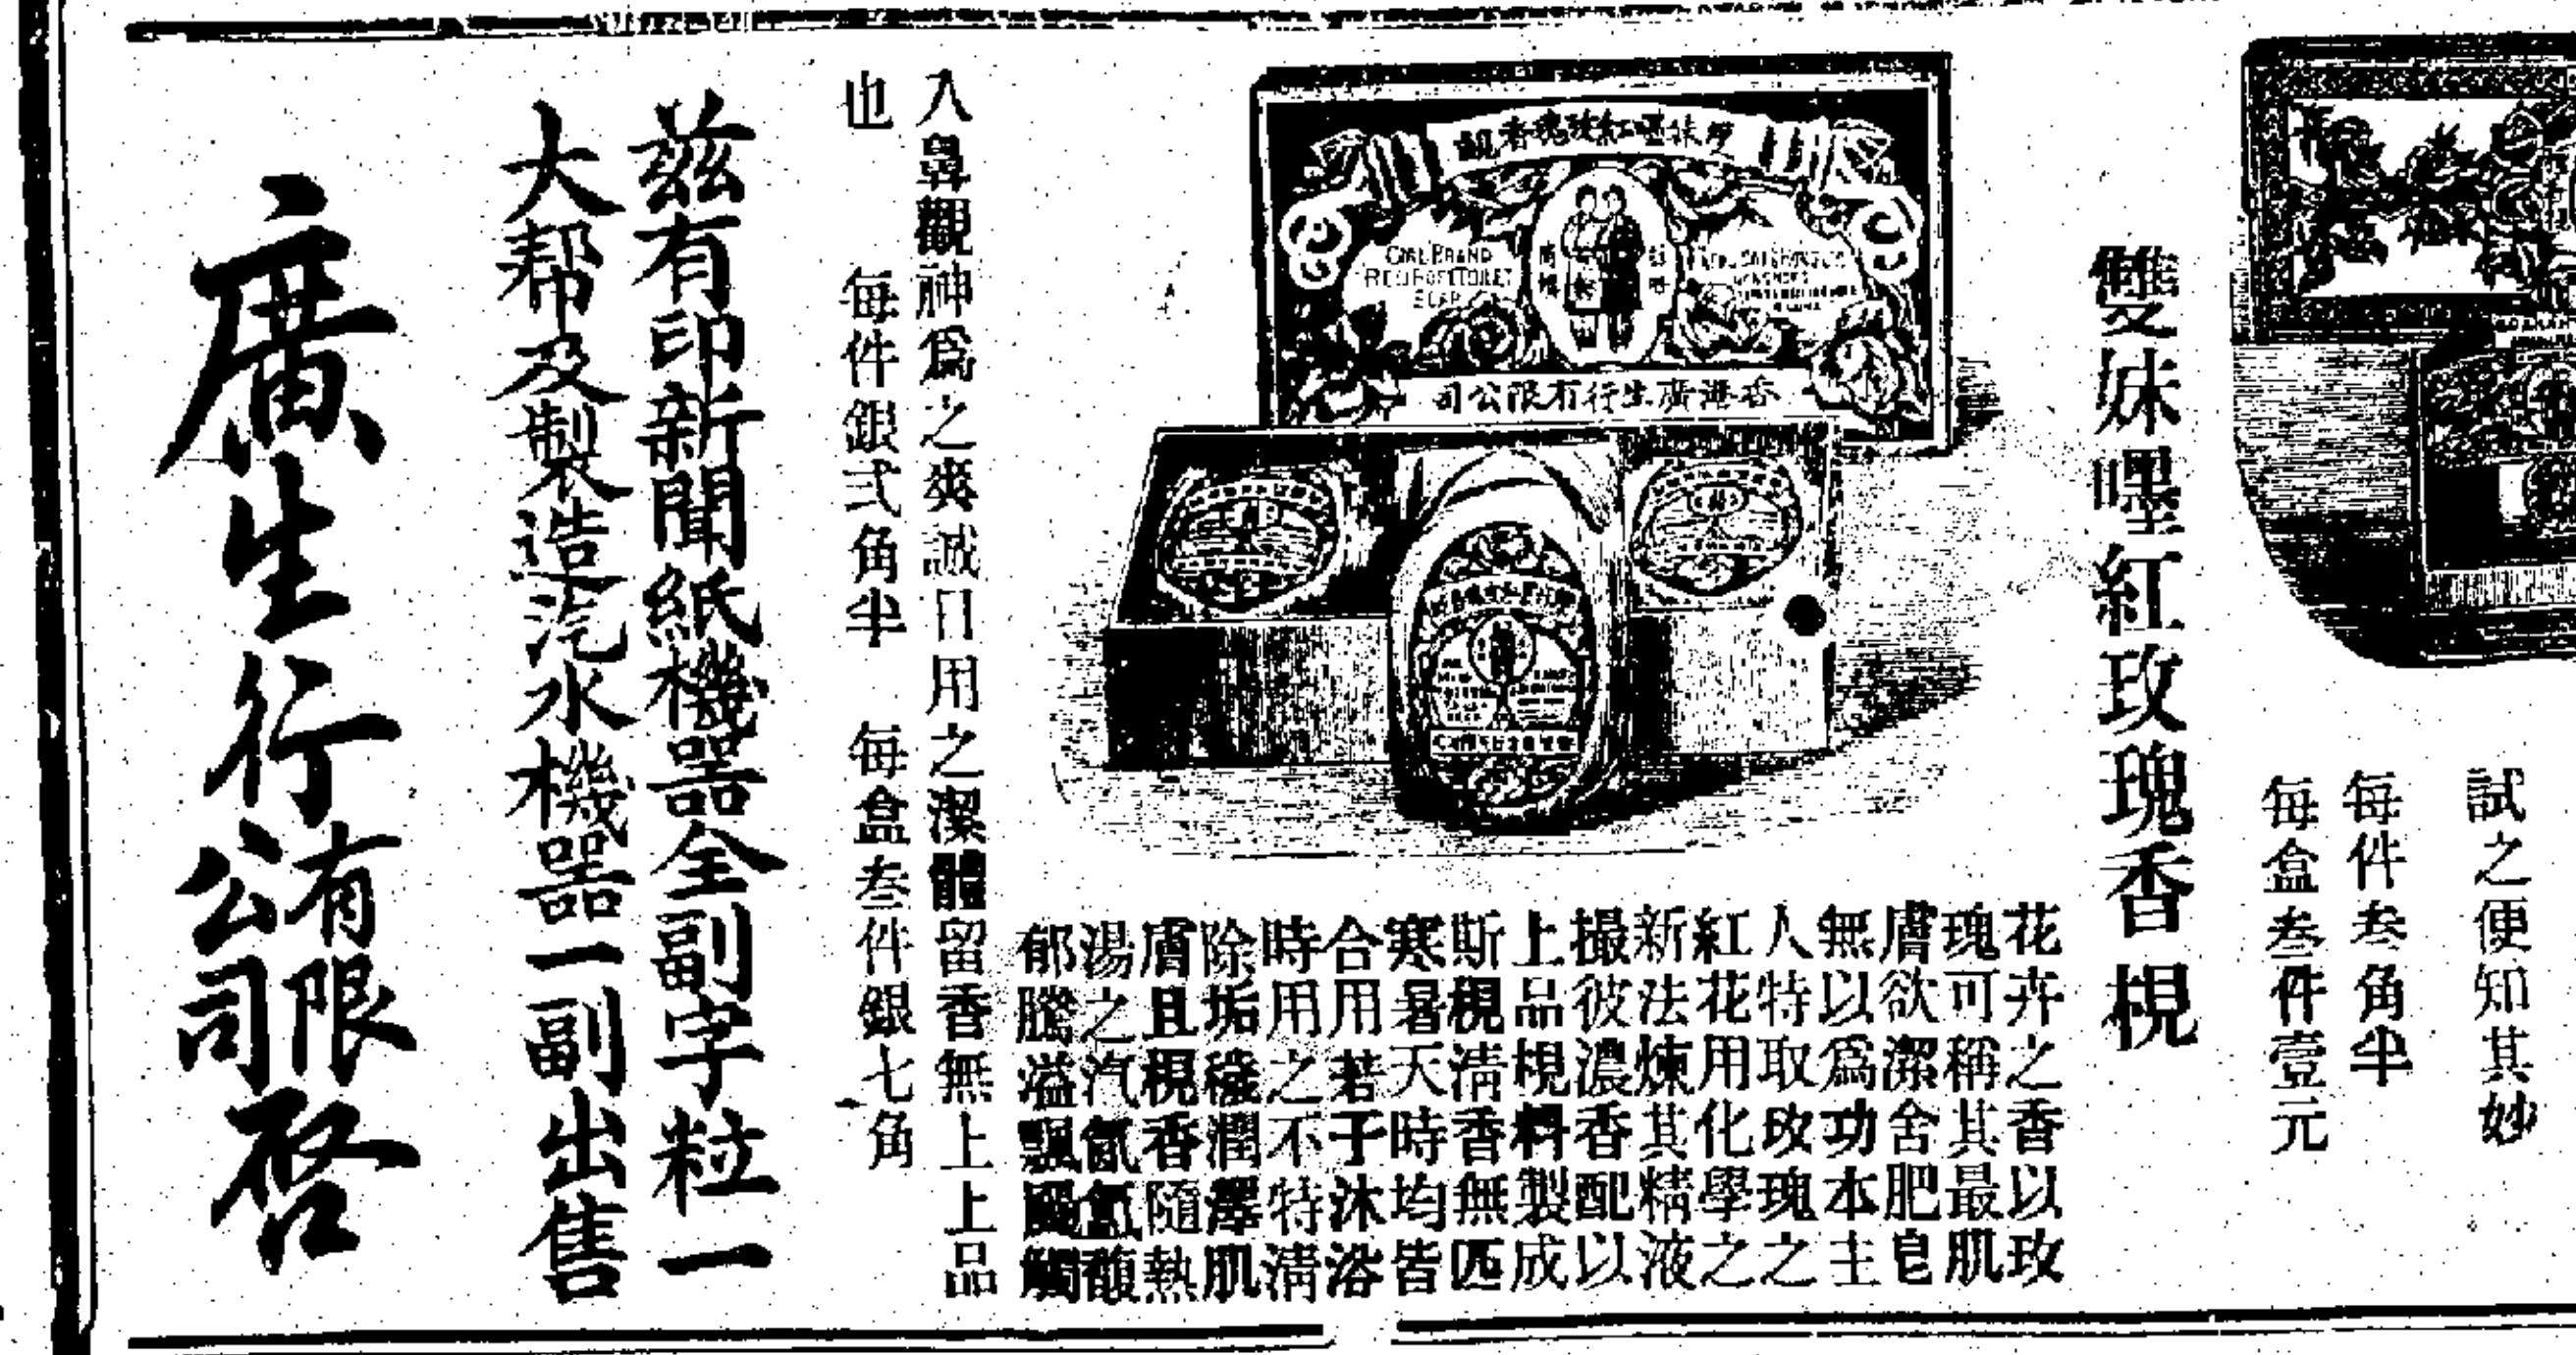 試之便知其妙
每件叁角半
每盒叁件壹元
雙妹嚜紅玫瑰香梘
香港廣生行有限公司
GIRL BRAND
RED ROSE TOILET
SOAP
花卉之香以玫
瑰可稱其最肌
膚欲潔舍肥皂
無以爲功本主
人特取玫瑰之
紅花用化學之
新法煉其精液
撮彼濃香配以
上品梘料製成
斯梘清香無匹
寒暑天時均皆
合用若于沐浴
時用之不特清
除垢穢潤澤肌
膚且梘香隨熱
湯之汽氤氳馥
郁騰溢飄颺觸
入鼻觀神爲之爽誠日用之潔體留香無上上品
也 每件銀弍角半 每盒叁件銀七角
茲有印新聞紙機器全副字粒一
大帮及製造汽水機器一副出售
廣生行有限公司啓